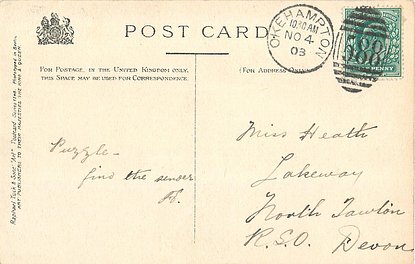 POST CARD
FOR POSTAGE, IN THE UNITED KINGDOM ONLY,
THIS SPACE MAY BE USED FOR CORRESPONDENCE.
(FOR ADDRESS ONLY.)
OKEHAMPTON
10.30 AM
NO 4
03
Puzzle -
find the sender
Miss Heath
Lakeway
North Tawton
R.S.O. Devon
RAPHAEL TUCK & SONS' "ART" POSTCARD
ART PUBLISHERS TO THEIR MAJESTIES THE KING & QUEEN.